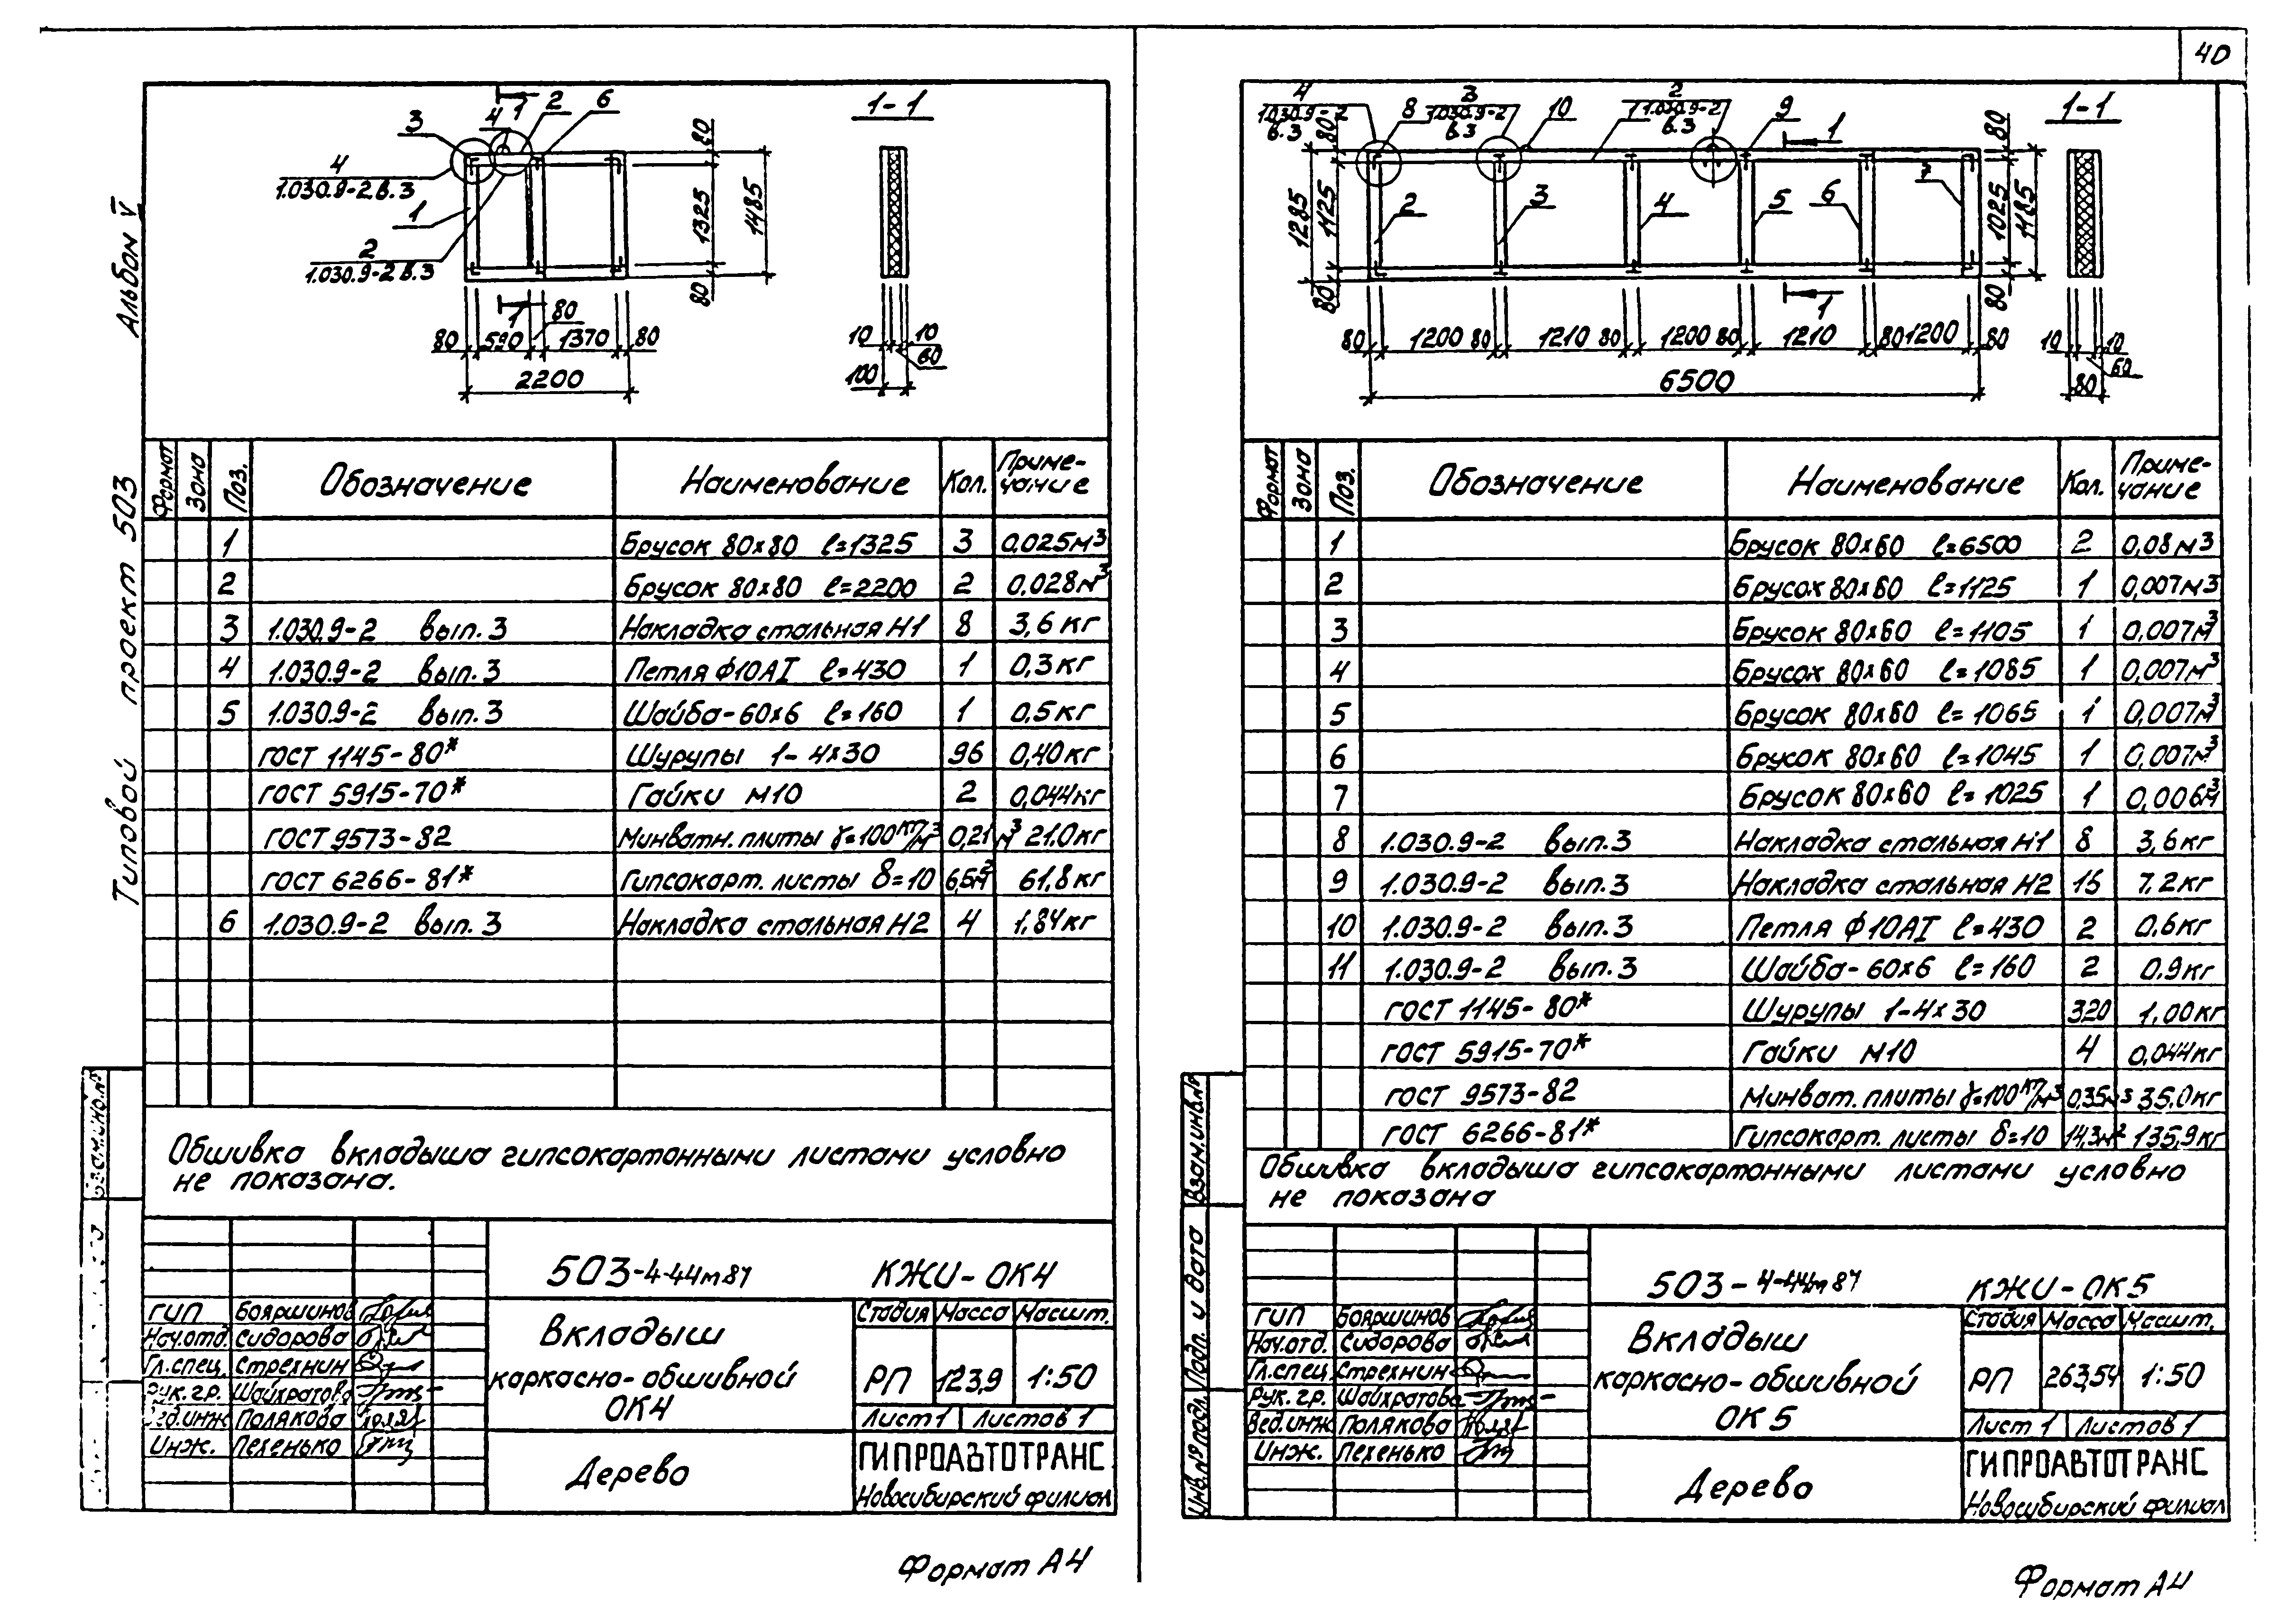 40
Альбом V
Типовой проект 503
1
1
3
4
2
6
4
1.030.9-2 в.3
1
2
1.030.9-2 в.3
80
1325
80
1485
80
590
80
1370
80
2200
1-1
10
10
60
100
Формат
Зона
Поз.
Обозначение
Наименование
Кол.
Приме-
чание
1 Брусок 80х80 ℓ=1325 3 0,025м³
2 Брусок 80х80 ℓ=2200 2 0,028м³
3 1.030.9-2 вып.3 Накладка стальная Н1 8 3,6 кг
4 1.030.9-2 вып.3 Петля ф10АI ℓ=430 1 0,3 кг
5 1.030.9-2 вып.3 Шайба-60х6 ℓ=160 1 0,5 кг
ГОСТ 1145-80* Шурупы 1-4х30 96 0,40кг
ГОСТ 5915-70* Гайки М10 2 0,044кг
ГОСТ 9573-82 Минватн. плиты γ=100кг/м³ 0,21м³ 21.0кг
ГОСТ 6266-81* Гипсокарт. листы δ=10 6,5м² 61,8 кг
6 1.030.9-2 вып.3 Накладка стальная Н2 4 1,84кг
Обшивка вкладыша гипсокартонными листами условно
не показана.
Взам.инв.№
503-4-44м87 КЖИ-ОК4
ГИП Бояршинов
Нач.отд. Сидорова
Гл.спец. Стрехнин
Рук.гр. Шайхратова
Вед.инж Полякова
Инж. Пехенько
Вкладыш
каркасно-обшивной
ОК4
Стадия Масса Масшт.
РП 123,9 1:50
Лист 1 Листов 1
Дерево
ГИПРОАВТОТРАНС
Новосибирский филиал
Формат А4
4
1.030.9-2
в.3
8
3
1.030.9-2
в.3
10
2
1.030.9-2
в.3
1
9
1
1
2
3
4
5
6
7
80
1285
1125
80
80
1025
1185
80
80 1200 80 1210 80 1200 80 1210 80 1200 80
6500
1-1
10
10
60
80
Формат
Зона
Поз.
Обозначение
Наименование
Кол.
Приме-
чание
1 Брусок 80х60 ℓ=6500 2 0,08 м3
2 Брусок 80х60 ℓ=1125 1 0,007м3
3 Брусок 80х60 ℓ=1105 1 0,007м³
4 Брусок 80х60 ℓ=1085 1 0,007м³
5 Брусок 80х60 ℓ=1065 1 0,007м³
6 Брусок 80х60 ℓ=1045 1 0,007м³
7 Брусок 80х60 ℓ=1025 1 0,006м³
8 1.030.9-2 вып.3 Накладка стальная Н1 8 3,6кг
9 1.030.9-2 вып.3 Накладка стальная Н2 16 7,2кг
10 1.030.9-2 вып.3 Петля ф10АI ℓ=430 2 0,6кг
11 1.030.9-2 вып.3 Шайба-60х6 ℓ=160 2 0,9кг
ГОСТ 1145-80* Шурупы 1-4х30 320 1,00кг
ГОСТ 5915-70* Гайки М10 4 0,044кг
ГОСТ 9573-82 Минват. плиты γ=100кг/м³ 0,35м³ 35.0кг
ГОСТ 6266-81* Гипсокарт. листы δ=10 14,3м² 135,9кг
Обшивка вкладыша гипсокартонными листами условно
не показана
Взам.инв.№
Подп. и дата
Инв.№ подл.
503-4-44м87 КЖИ-ОК5
ГИП Бояршинов
Нач.отд. Сидорова
Гл.спец Стрехнин
Рук.гр. Шайхратова
Вед.инж Полякова
Инж. Пехенько
Вкладыш
каркасно-обшивной
ОК5
Стадия Масса Масшт.
РП 263,54 1:50
Лист 1 Листов 1
Дерево
ГИПРОАВТОТРАНС
Новосибирский филиал
Формат А4